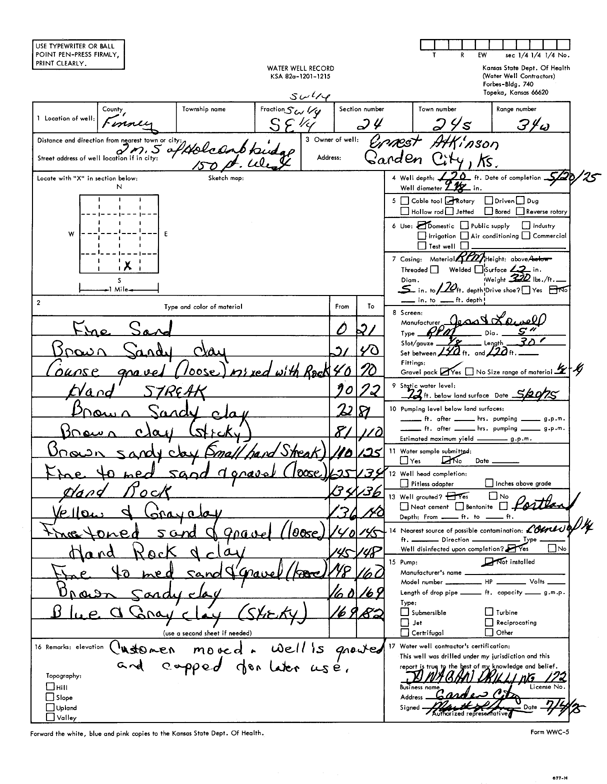 USE TYPEWRITER OR BALL
POINT PEN-PRESS FIRMLY,
PRINT CLEARLY.
T R EW sec 1/4 1/4 1/4 No.
WATER WELL RECORD
KSA 82a-1201-1215
Kansas State Dept. Of Health
(Water Well Contractors)
Forbes-Bldg. 740
Topeka, Kansas 66620
SW1/4
1 Location of well: County Finney Township name Fraction SW1/4 SE1/4 Section number 24 Town number 24s Range number 34w
Distance and direction from nearest town or city: 2 m. S of Holcomb bridge
Street address of well location if in city: 150 ft. West
3 Owner of well: Ernest Atkinson
Address: Garden City, Ks.
Locate with "X" in section below: Sketch map:
N
W E
X
S
1 Mile
4 Well depth: 120 ft. Date of completion 5/20/75
Well diameter in.
5 Cable tool Rotary Driven Dug
Hollow rod Jetted Bored Reverse rotary
6 Use: Domestic Public supply Industry
Irrigation Air conditioning Commercial
Test well
7 Casing: Material RPM Height: above
Threaded Welded Surface 12 in.
Diam. Weight lbs./ft.
5 in. to 120 ft. depth Drive shoe? Yes No
in. to ft. depth
2 Type and color of material From To
Fine Sand 0 21
Brown Sandy clay 21 40
Course gravel (loose) mixed with Rock 40 70
Hand STREAK 70 72
Brown Sandy clay 72 81
Brown clay (sticky) 81 110
Brown sandy clay (Small hand Streak) 110 125
Fine to med sand & gravel (loose) 125 134
Hand Rock 134 136
Yellow & Gray clay 136 140
Fine to med sand & gravel (loose) 140 145
Hand Rock & clay 145 148
Fine to med sand & gravel (loose) 148 160
Brown Sandy clay 160 169
Blue & Gray clay (Sticky) 169 82
(use a second sheet if needed)
8 Screen:
Manufacturer
Type RPM Dia. 5"
Slot/gauze 1/8 Length 30'
Set between ft. and 120 ft.
Fittings:
Gravel pack Yes No Size range of material
9 Static water level:
72 ft. below land surface Date 5/20/75
10 Pumping level below land surfaces:
ft. after hrs. pumping g.p.m.
ft. after hrs. pumping g.p.m.
Estimated maximum yield g.p.m.
11 Water sample submitted:
Yes No Date
12 Well head completion:
Pitless adapter Inches above grade
13 Well grouted? Yes No
Neat cement Bentonite Portland
Depth: From ft. to ft.
14 Nearest source of possible contamination:
ft. Direction Type
Well disinfected upon completion? Yes No
15 Pump: Not installed
Manufacturer's name
Model number HP Volts
Length of drop pipe ft. capacity g.m.p.
Type:
Submersible Turbine
Jet Reciprocating
Certrifugal Other
16 Remarks: elevation Customer moved. Well is grouted
and capped for later use.
Topography:
Hill
Slope
Upland
Valley
17 Water well contractor's certification:
This well was drilled under my jurisdiction and this
report is true to the best of my knowledge and belief.
DRILLING 172
Business name License No.
Address Garden City
Signed Date 7/4/75
Authorized representative
Forward the white, blue and pink copies to the Kansas State Dept. Of Health.
Form WWC-5